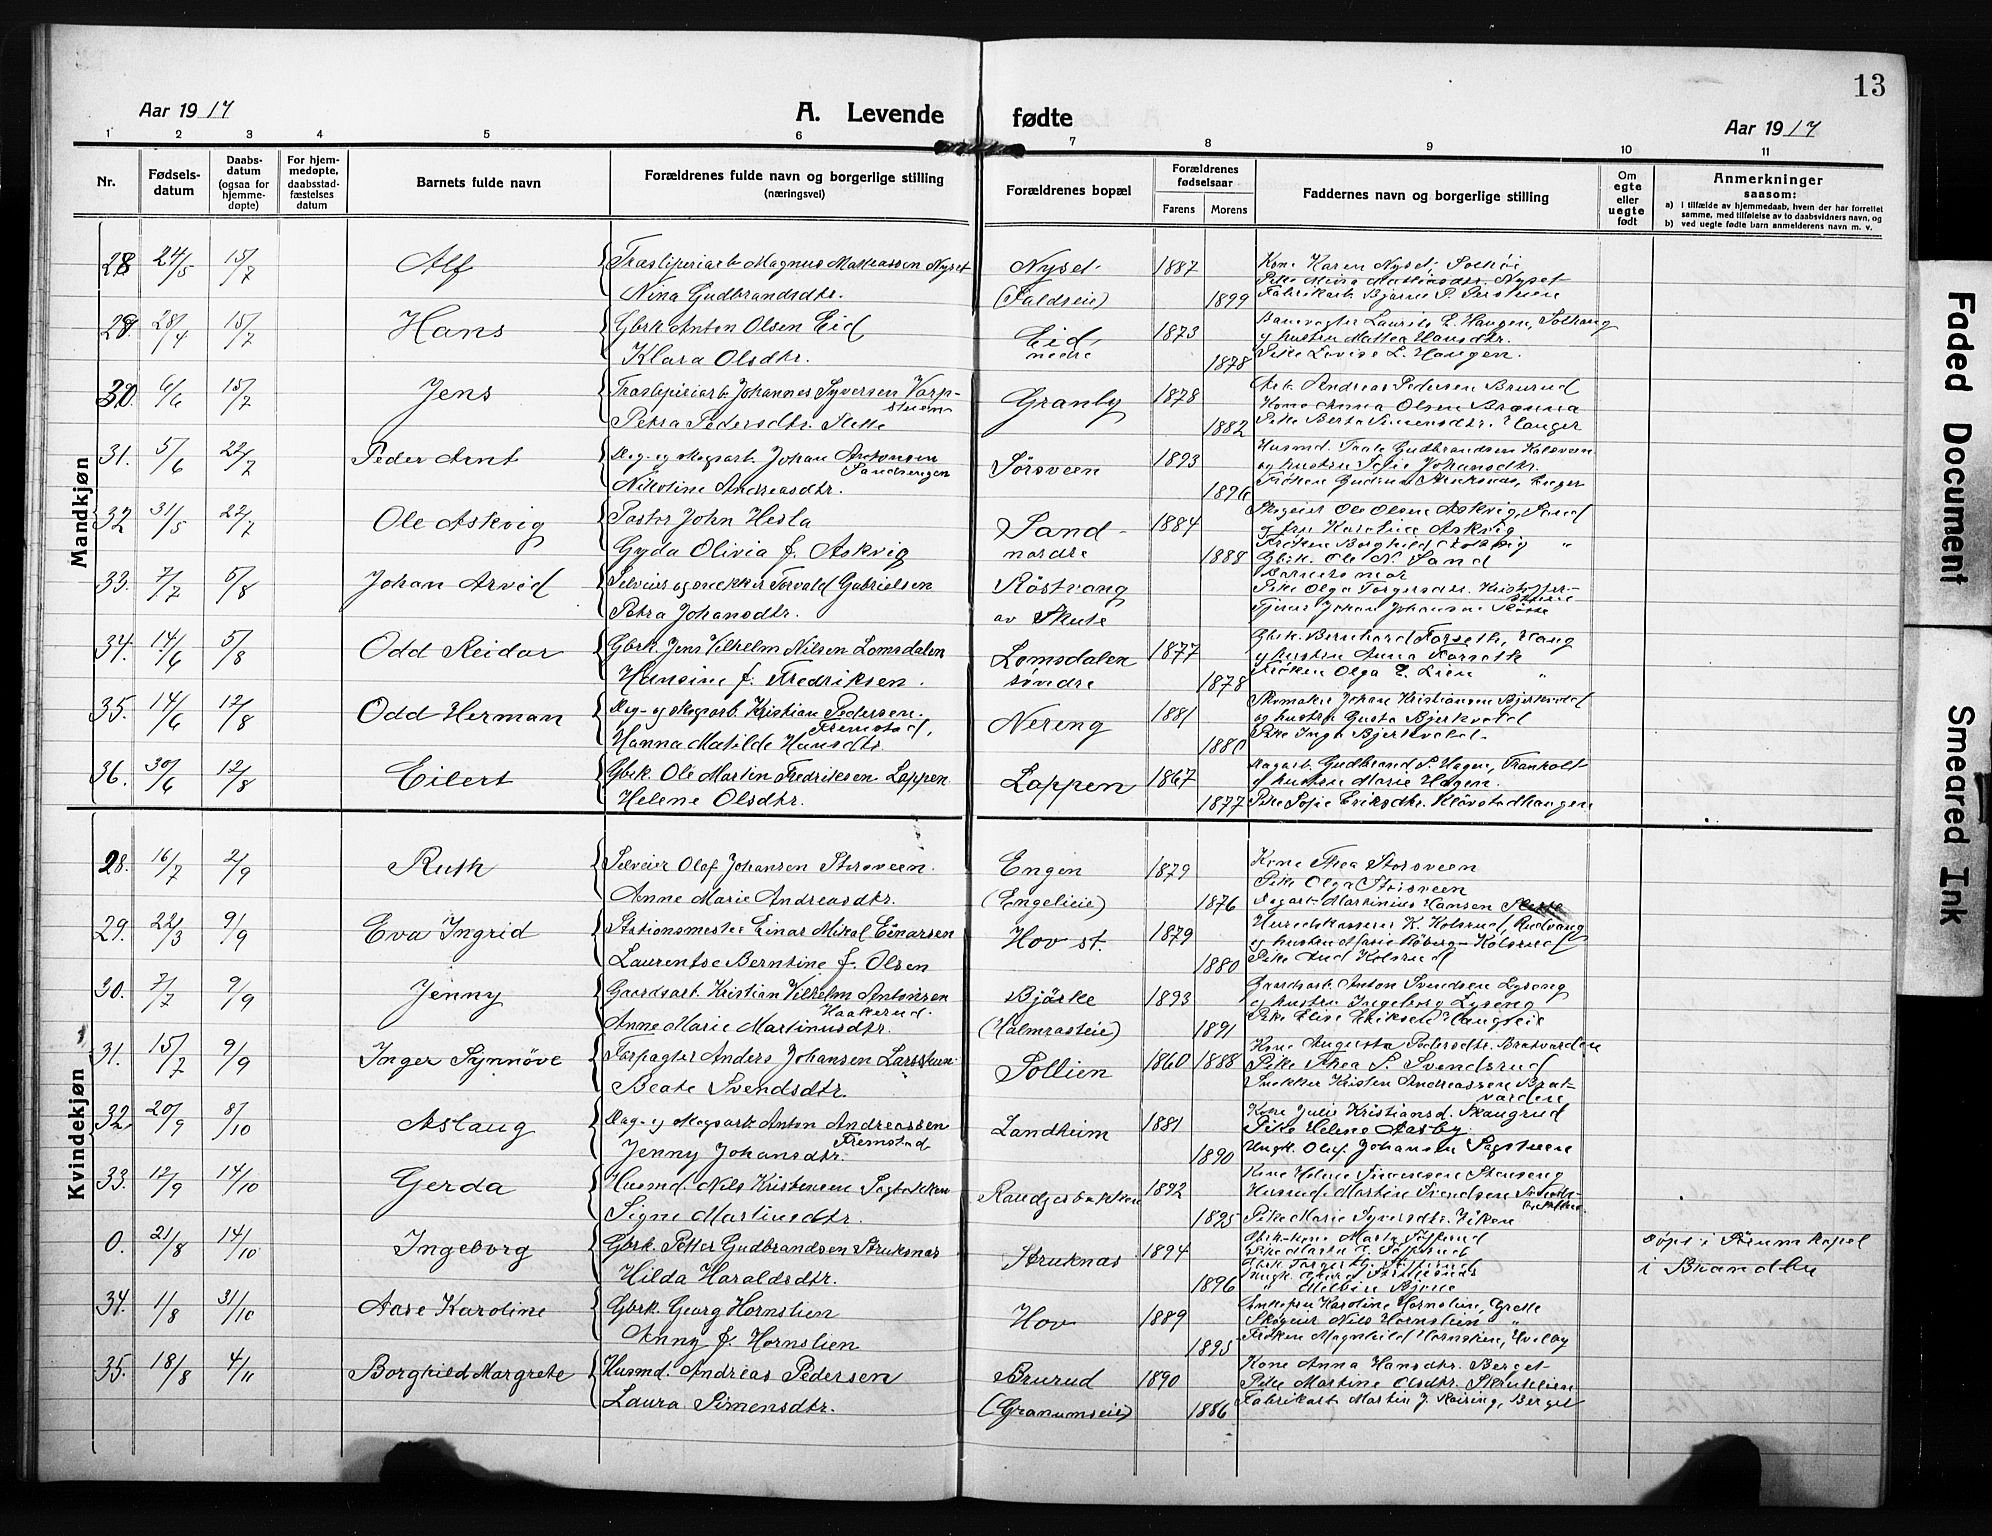 13
Aar 1917
A. Levende fødte
Aar 1917
1 2 3 4 5 6 7 8 9 10 11
Nr.
Fødsels-
datum
Daabs-
datum
(ogsaa for
hjemme-
døpte)
For hjem-
medøpte,
daabsstad-
fæstelses
datum
Barnets fulde navn
Forældrenes fulde navn og borgerlige stilling
(næringsvei)
Forældrenes bopæl
Forældrenes
fødselsaar
Farens
Morens
Faddernes navn og borgerlige stilling
Om
egte
eller
uegte
født
Anmerkninger
saasom:
a) i tilfælde av hjemmedaab, hvem der har forrettet
samme, med tilføielse av to daabsvidners navn, og
b) ved uegte fødte barn anmelderens navn m. v.
Mandkjøn
28. 24/5 15/7 Alf Træsliperiarb. Magnus Mathiassen Nyset Nyset 1887 Kone Karen Nyset, Solhøi
Pike Mina Mathiasdtr. Nyset
Nina Gudbrandsdtr. (Faldseie) 1899 Fabrikarb. Bjarne P. Perstuen
29. 28/4 15/7 Hans Gbrk. Anton Olsen Eid Eid 1873 Banevogter Laurits L. Haugen, Solhaug
nedre og hustru Mathea Hansdtr.
Klara Olsdtr. 1878 Pike Lovise L. Haugen.
30. 6/6 15/7 Jens Træsliperiarb. Johannes Syversen Varp-
stuen Granby 1878 Arb. Andreas Pedersen Brurud
Kone Anna Olsen Brænna
Petra Pedersdtr. Slette 1882 Pike Berta Simensdtr. Hauger
31. 5/6 22/7 Peder Arnt Dag- og skogsarb. Johan Antonsen
Sandsengen Sørsveen 1893 Husmd. Gudbrandsen Kolsveen
og hustru Sofie Johansdtr.
Nikoline Andreasdtr. 1896 Frøken Gudrun
32 31/5 22/7 Ole Askvig Pastor John Hesla Sand 1884 Skogeier Ole Olsen Askvig, Sand
nordre og fru Karoline Askvig
Frøken Borghild Askvig "
Gyda Olivia f. Askvig 1888 Gbrk. Ole N. Sand
33. 7/7 5/8 Johan Arvid Selveier og snekker Torvald Gabrielsen Røstvang Barnets mor
Pike Olga Torgersdtr. Kristoffer-
stuen
Petra Johansdtr. av Skute Johan Johansen
34. 14/6 5/8 Odd Reidar Gbrk. Jens Vilhelm Nilsen Lomsdalen Lomsdalen 1877 Gbrk. Bernhard Forseth, Haug
søndre og hustru Anna Forseth
Hansine f. Fredriksen. 1878 Frøken Olga E. Lien "
35. 14/6 12/8 Odd Herman Dag- og skogsarb. Kristian Pedersen
Fremstad, Nereng 1881 Skomaker Johan Kristiansen Bjerkvold
og hustru Gusta Bjerkvold
Hanna Matilde Hansdtr. 1880 Pike Inga Bjerkvold.
36. 30/6 12/8 Eilert Gbrk. Ole Martin Fredriksen Lappen Lappen 1867 Dagarb. Gudbrand P. Hagen, Framholt
og hustru Marie Hagen.
Helene Olsdtr. 1877 Pike Sofie Eriksdtr. Kløvstadhaugen
Kvindekjøn
28. 16/7 2/9 Ruth Selveier Olaf Johansen Storsveen. Engen 1879 Kone Thea Storsveen
Pike Olga Storsveen
Anne Marie Andreasdtr. (Engelieie) 1876 Dagarb. Martinius Hansen Slette
29. 22/3 9/9 Eva Ingrid Stationsmester Einar Mikal Einarsen Hov st. 1879 Herredskasserer K. Kolsrud, Rudvang
og hustru Marie Røberg-Kolsrud
Laurentse Berntine f. Olsen 1880 Pike Aud Kolsrud
30. 7/7 9/9 Jenny Gaardsarb. Kristian Vilhelm Antonsen
Haakerud. Bjørke 1893 Gaardsarb. Anton Svendsen Lyseng
og hustru Ingeborg Lyseng
Anne Marie Martinusdtr. (Halmrasteie) 1891 Pike Elise Eriksen Haugseie
31. 15/7 9/9 Inger Synnøve Forpagter Anders Johansen Larsstuen Sollien 1860 1888 Kone Augusta Pedersdtr. Bratvarden
Pike Thea S. Svendsrud
Beate Svendsdtr. Snekker Kristen Andreassen Brat-
varden
32. 20/9 8/10 Aslaug Dag- og skogsarb. Anton Andreassen
Fremstad Landheim 1881 Kone Julie Kristiansd. Skaugrud
Pike Helene Aasby.
Jenny Johansdtr. 1890 Ungk. Olaf Johansen Sagstuen
33. 12/9 14/10 Gerda Husmd. Nils Kristensen Sagbakken Raudgerbakken 1892 Kone Helene Simensen Stenseng
Husmd. Martin Svendsen
Signe Martinsdtr. 1895 Pike Marie Syversdtr. Viken
0. 21/8 14/10 Ingeborg Gbrk. Petter Gudbrandsen Struksnæs Struknæs 1894 Gbrk.-kone Marte
Hilda Haraldsdtr. 1896 døpt i Aurum kapel
i Brandbu
34. 1/8 31/10 Aase Karoline Gbrk. Georg Hornslien Hov 1889 Enkefru Karoline Hornslien, Grette
Skogeier Nils Hornslien "
Anny f. Hornslien 1895 Frøken Magnhild Hornslien, Hvalby
35. 18/8 4/11 Borghild Margrete Husmd. Andreas Pedersen Brurud 1890 Kone Anna Hansdtr. Berget
Pike Martine Olsdtr. Skrutelien
Laura Simensdtr. (Granumseie) 1886 Fabrikarb. Martin J. Røising, Berget
Faded Document
Smeared Ink